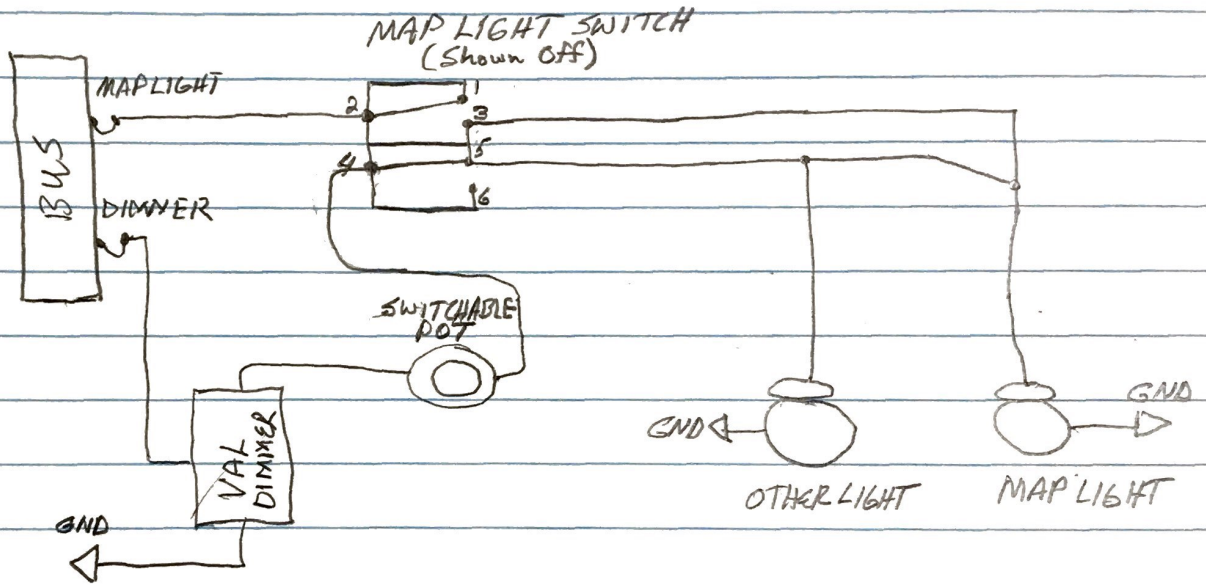 MAP LIGHT SWITCH
(Shown Off)
MAPLIGHT
BUS
DIMMER
1
2
3
4
5
6
SWITCHABLE
POT
VAL
DIMMER
GND
GND
GND
OTHER LIGHT
MAP LIGHT